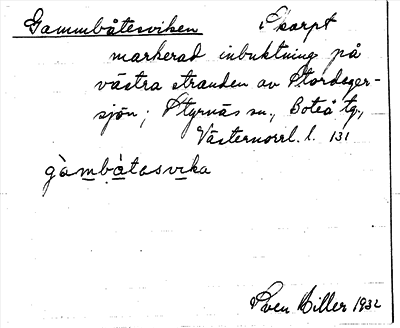 Gammbåtesviken Skarpt
markerad inbuktning på
västra stranden av Stordeger-
sjön; Styrnäs sn., Boteå tg.,
Västernorrl. l. 131
gàmbåtasvika
Sven Hiller 1932